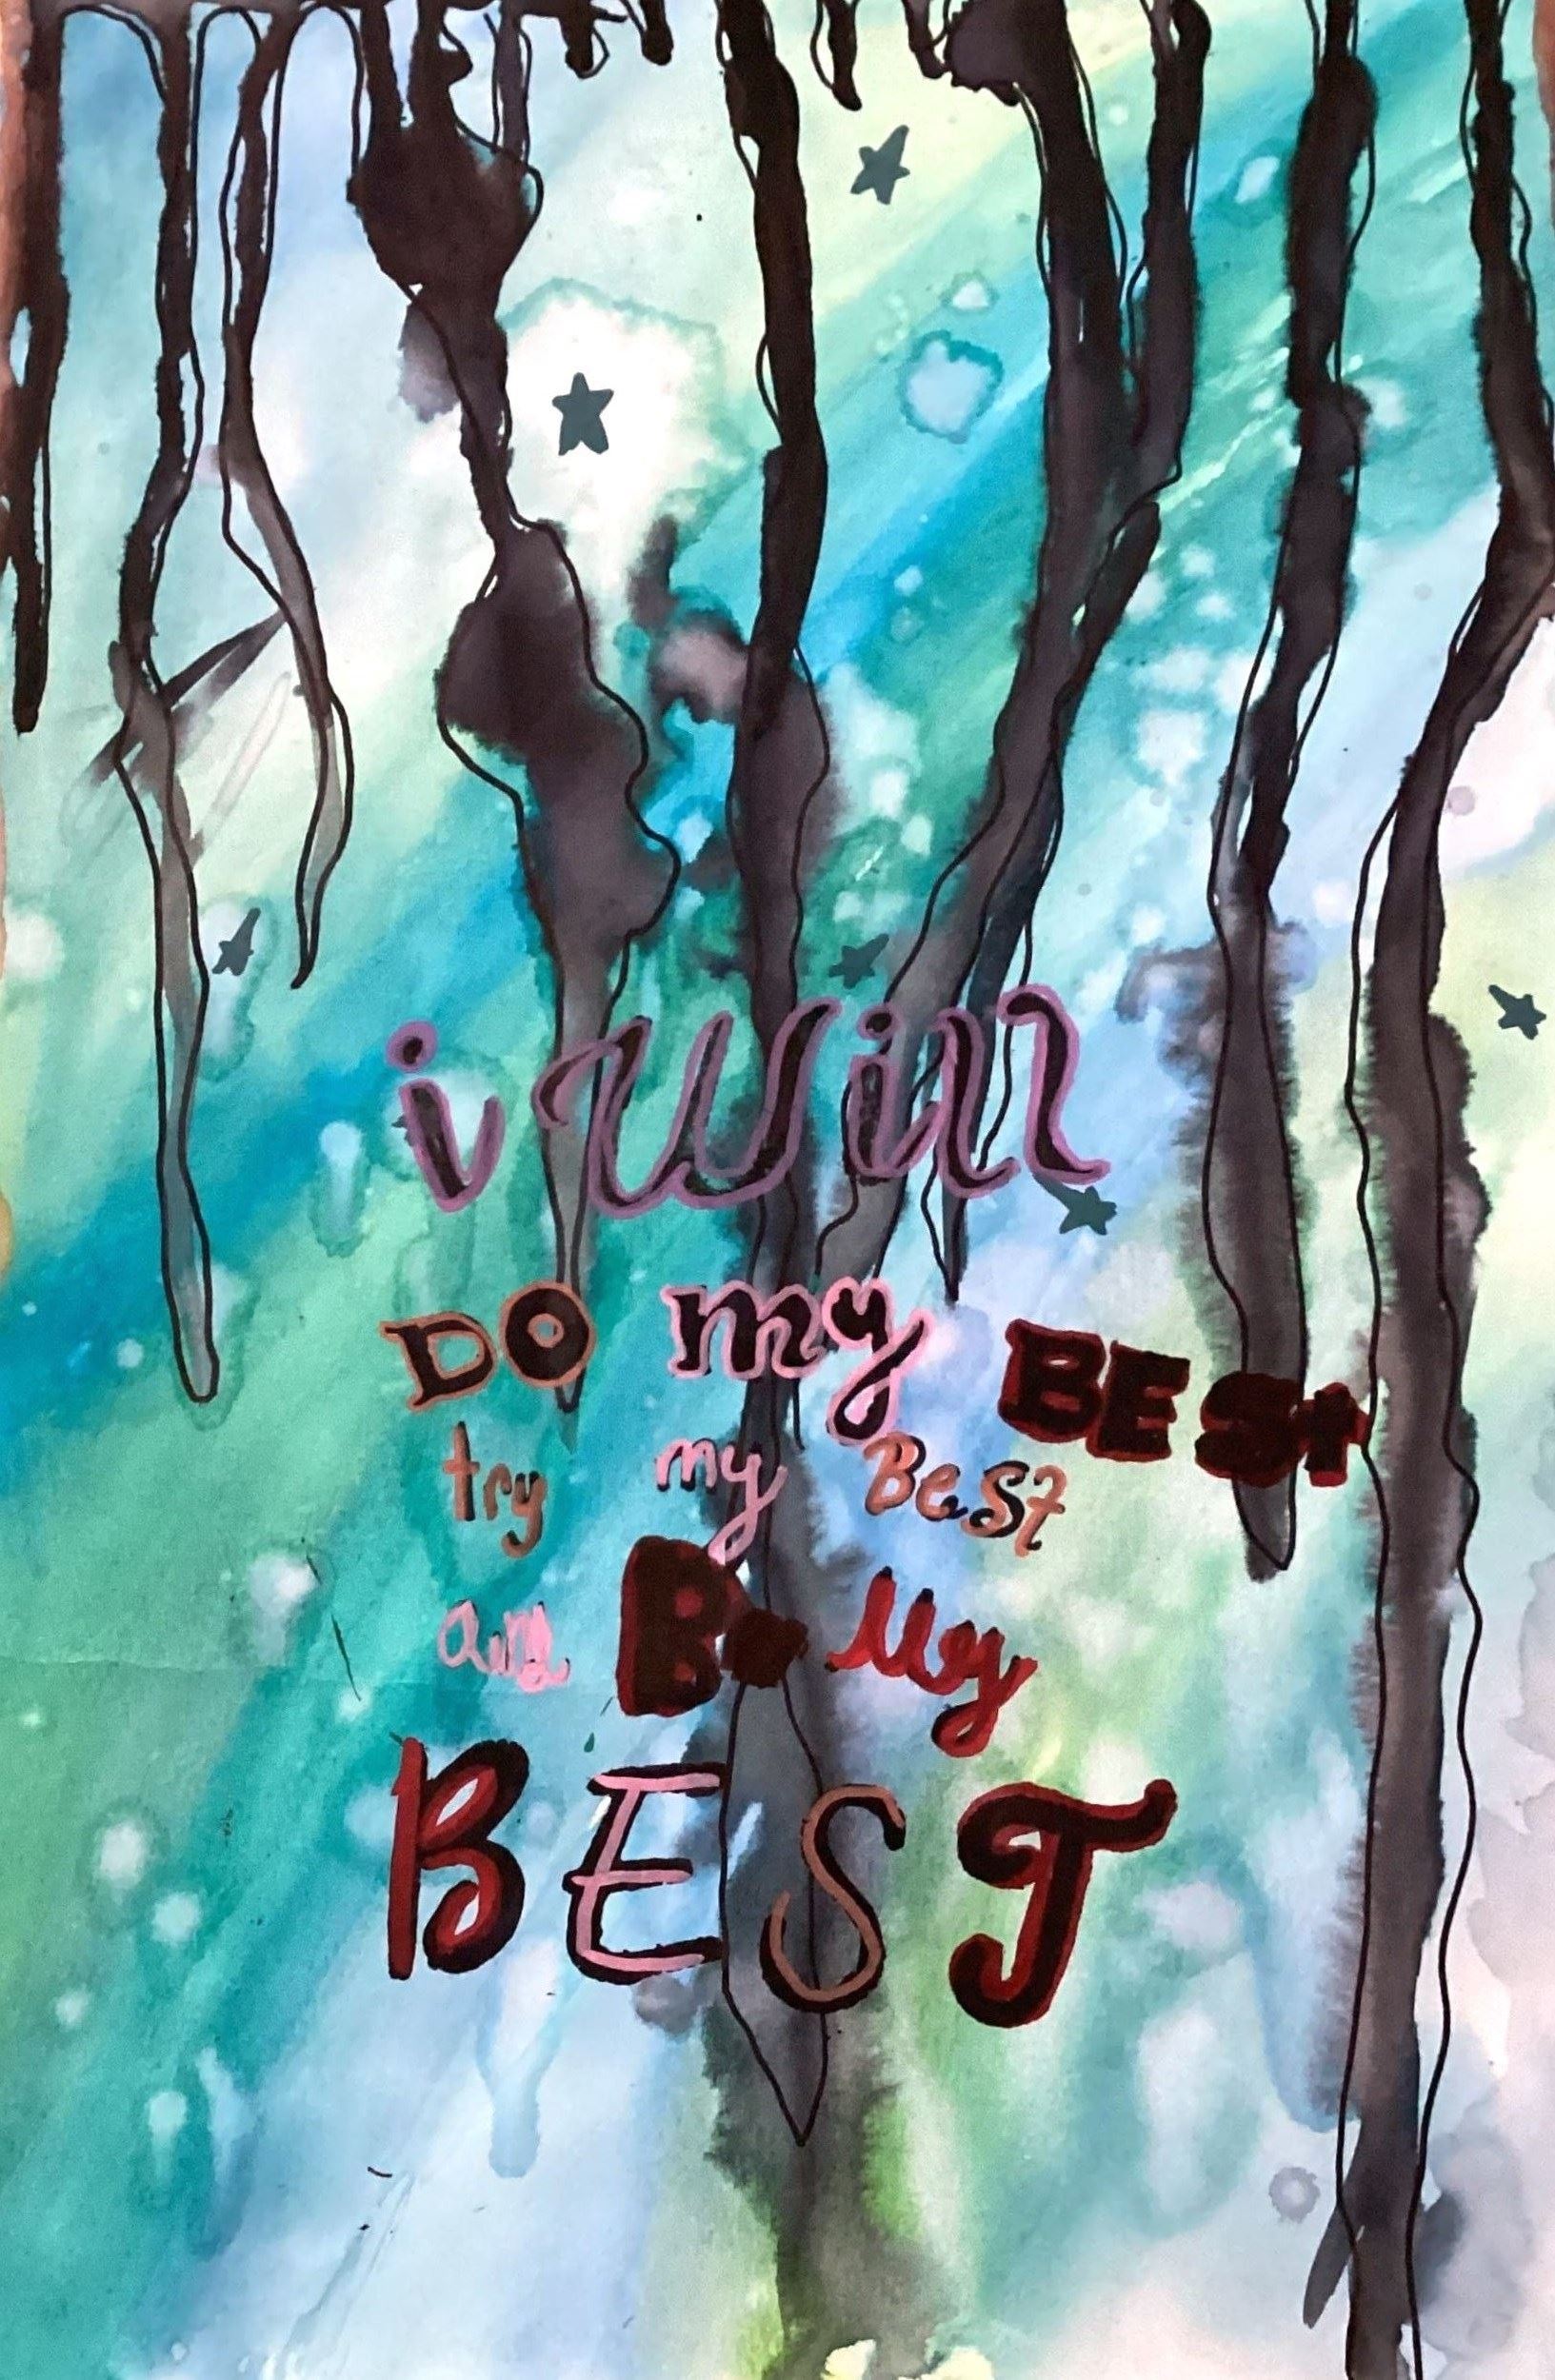 i will
DO my BESt
try my BeSt
and Be My
BEST